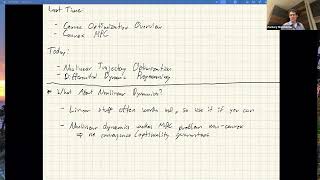 Last Time:
- Convex Optimization Overview
- Convex MPC
Today:
- Nonlinear Trajectory Optimization
- Differential Dynamic Programming
* What About Nonlinear Dynamics?
- Linear stuff often works well, so use it if you can
- Nonlinear dynamics makes MPC problem non-convex
⇒ no convergence/optimality guarantees